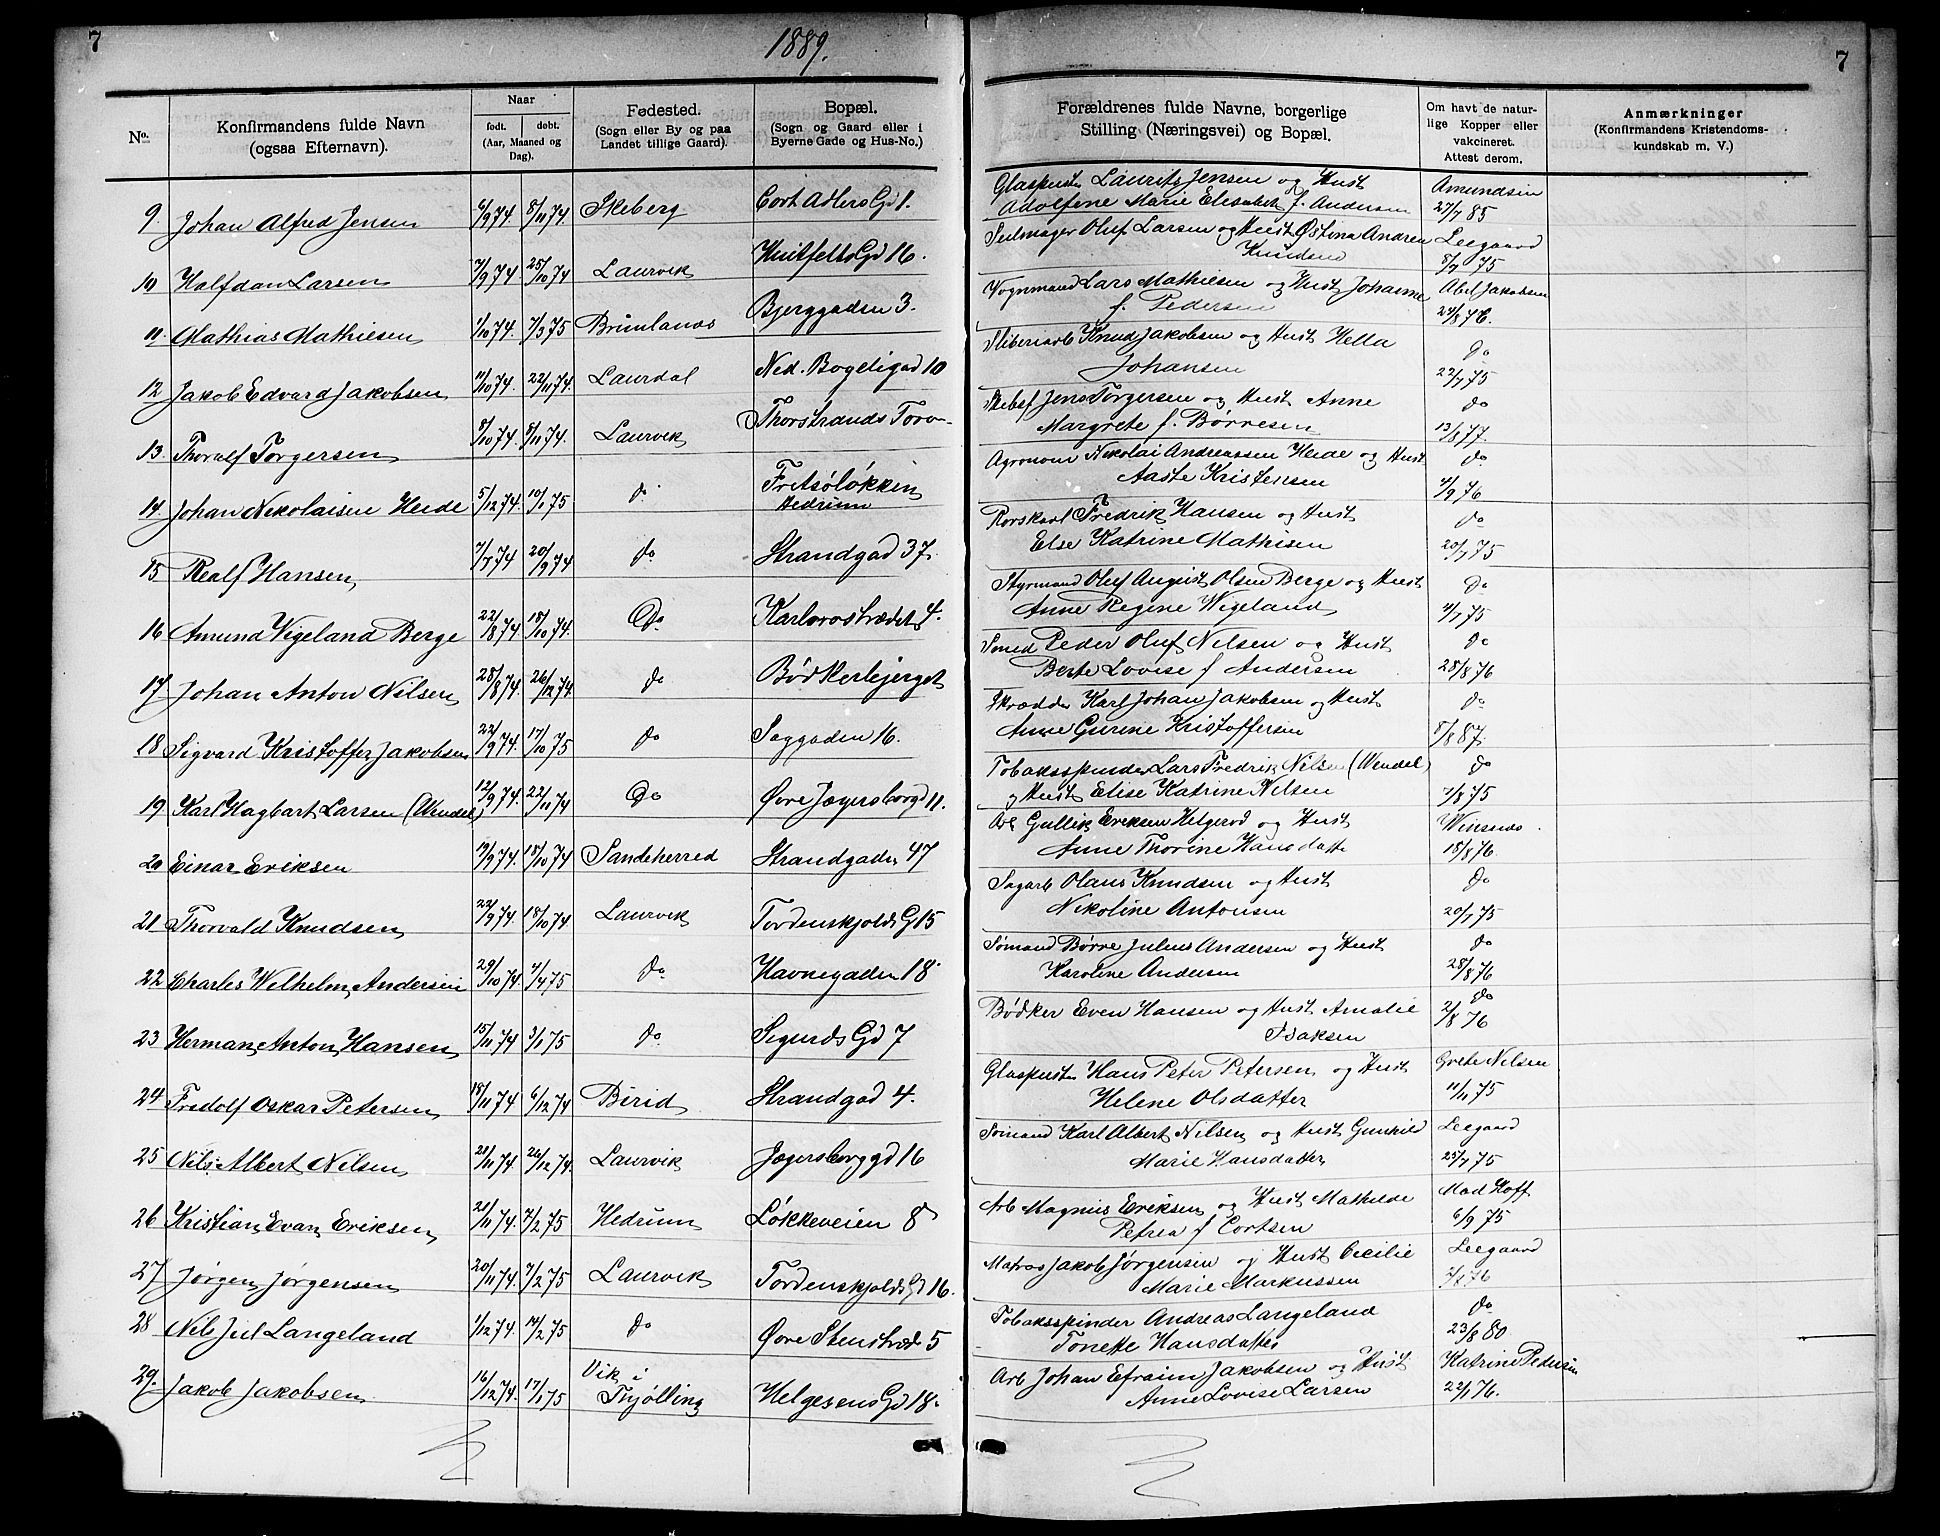 7
1889.
7
No.
Konfirmandens fulde Navn
(ogsaa Efternavn).
Naar
født.
døbt.
(Aar, Maaned og
Dag).
Fødested.
(Sogn eller By og paa
Landet tillige Gaard).
Bopæl.
(Sogn og Gaard eller i
Byerne Gade og Hus-No.)
Forældrenes fulde Navne, borgerlige
Stilling (Næringsvei) og Bopæl.
Om havt de natur-
lige Kopper eller
vakcineret.
Attest derom.
Anmærkninger
(Konfirmandens Kristendoms-
kundskab m. V.)
9. Johan Alfred Jensen 6/9 74. 8/11 74. Skeberg Cort Adlers Gd 1.
Glaspuster Laurits Jensen og Hust Amundsen
Adolfine Marie Elisabeth f. Andersen 27/7 85
10 Halfdan Larsen 7/9 74. 25/10 74 Laurvik Huitfelts Gd 16.
Seilmager Oluf Larsen og Hust Østina Andrea Leegaard
Knudsen 8/7 75
11. Mathias Mathiesen 1/10 74. 7/3 75 Brunlanæs Bjerggaden 3.
Vognmand Lars Mathiesen og Hust Johanne Abel Jakobsen
f. Pedersen 24/8 76.
12 Jakob Edvard Jakobsen 11/10 74. 22/11 74. Laurdal Ned. Bøgeligad 10
Sliberiarb Knud Jakobsen og Hust Hella Do
Johansen 22/7 75
13. Thoralf Torgersen 8/10 74. 8/11 74. Laurvik Thorstrands Torv
Skibsf Jens Torgersen og Hust Anne do
Margrete f. Børresen 13/8 77.
14. Johan Nikolaisen Heide 5/12 74. 10/1 75 do Fritsöløkken
Hedrum
Agronom Nikolai Andreassen Heide og Hust do
Aaste Kristensen 4/9 76
15 Realf Hansen 7/7 74 20/9 74 do Strandgad 37.
Rorskarl Fredrik Hansen og Hust do
Else Katrine Mathisen 20/7 75
16 Amund Vigeland Berge 22/8 74. 18/10 74. Do Karlsrostrædet 4.
Styrmand Oluf August Olsen Berge og Hust Do
Anne Regine Wigeland 4/7 75
17 Johan Anton Nilsen 28/8 74. 26/12 74 do Bödkerbjerget
Smed Peder Oluf Nilsen og Hust do
Berte Lovise f Andersen 28/8 76
18 Sigvard Kristoffer Jakobsen 22/9 74. 17/10 75 do Saggaden 16.
Skrædder Karl Johan Jakobsen og Hust do
Anne Gurine Kristoffersen 8/8 87.
19 Karl Hagbart Larsen (Wendel) 12/9 74. 22/11 74 Do Øvre Jægersborgd 11.
Tobaksspinder Lars Fredrik Nilsen (Wendel) do
og Hust Elise Katrine Nilsen 7/8 75
20 Einar Eriksen 19/9 74. 18/10 74 Sandeherred Strandgaden 47
Arb Gullik Eriksen Helgerød og Hust Winsnæs
Anne Thorine Hansdatte 18/8 76.
21 Thorvald Knudsen 22/9 74. 18/10 74 Laurvik Tordenskjolds G 15
Sagarb Olaus Knudsen og Hust Do
Nikoline Antonsen 20/7 75
22 Charles Wilhelm Andersen 29/10 74. 4/4 75 do Havnegaden 18.
Sömand Börre Julius Andersen og Hust do
Karoline Andersen 28/8 76
23 Herman Anton Hansen 15/11 74 3/1 75 do Sigurds Gd 7
Bödker Even Hansen og Hust Amalie do
Isaksen 2/8 76
24 Fredolf Oskar Petersen 18/11 74 6/12 74 Birid Strandgad 4.
Glaspuster Hans Peter Petersen og Hust Grete Nilsen
Helene Olsdatter 11/11 75
25 Nils Albert Nilsen 21/11 74. 26/12 74. Laurvik Jægersborg gd 16
Sömand Karl Albert Nilsen og Hust Gunhild Leegaard
Marie Hansdatter 25/7 75
26 Kristian Evan Eriksen 21/11 74. 7/2 75 Hedrum Løkkeveien 8
Arb Magnus Eriksen og Hust Mathilde Mad Hoff
Petrea f Cortsen 6/9 75
27 Jørgen Jørgensen 20/11 74. 7/2 75 Laurvik Tordenskjolds Gd 16.
Matros Jakob Jörgensen og Hust Cecilie Leegaard
Marie Markussen 76
28 Nils Juel Langeland 1/12 74. 14/2 75 do Øvre Stenstræde 5
Tobaksspinder Andreas Langeland do
Tonette Hansdatter 23/8 80
29. Jakob Jakobsen 16/12 74. 17/1 75 Vik i
Thjølling Helgesens Gd 18.
Arb Johan Efraim Jakobsen og Hust Katrine Pedersen
Anne Lovise Larsen 22/1 76.